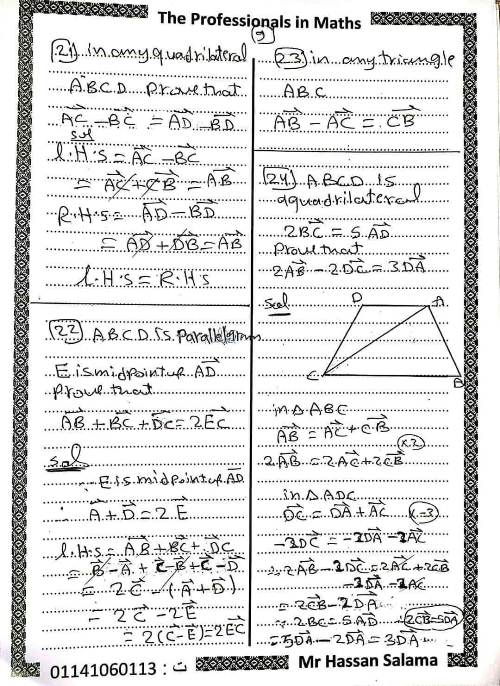 The Professionals in Maths
9
(21) in any quadrilateral
ABCD Prove that
AC - BC = AD - BD
sol
L.H.S = AC - BC
= AC + CB = AB
R.H.S = AD - BD
= AD + DB = AB
L.H.S = R.H.S
(22) ABCD is Parallelogram
E is midpoint of AD
Prove that
AB + BC + DC = 2EC
sol
∵ E is midpoint of AD
∴ A + D = 2E
L.H.S = AB + BC + DC
= B - A + C - B + C - D
= 2C - (A + D)
= 2C - 2E
= 2(C - E) = 2EC
(23) in any triangle
ABC
AB - AC = CB
(24) ABCD is
a quadrilateral
2BC = 5AD
Prove that
2AB - 2DC = 3DA
sol
D A
C B
in Δ ABC
AB = AC + CB
x2
2AB = 2AC + 2CB
in Δ ADC
DC = DA + AC
-2DC = -2DA - 2AC
∴ 2AB - 2DC = 2AC + 2CB
- 2DA - 2AC
= 2CB - 2DA
∵ 2BC = 5AD ∴ 2CB = 5DA
= 5DA - 2DA = 3DA
01141060113 : ت
Mr Hassan Salama